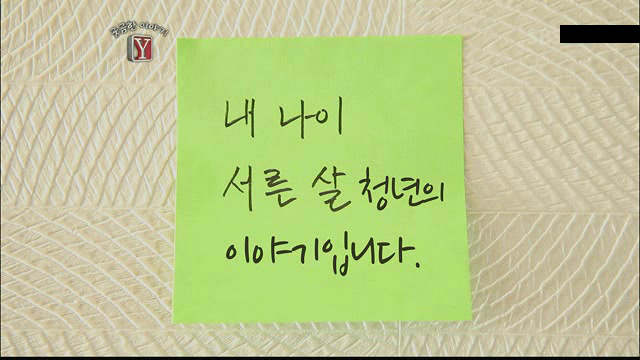 궁금한 이야기
Y
내 나이
서른 살 청년의
이야기입니다.